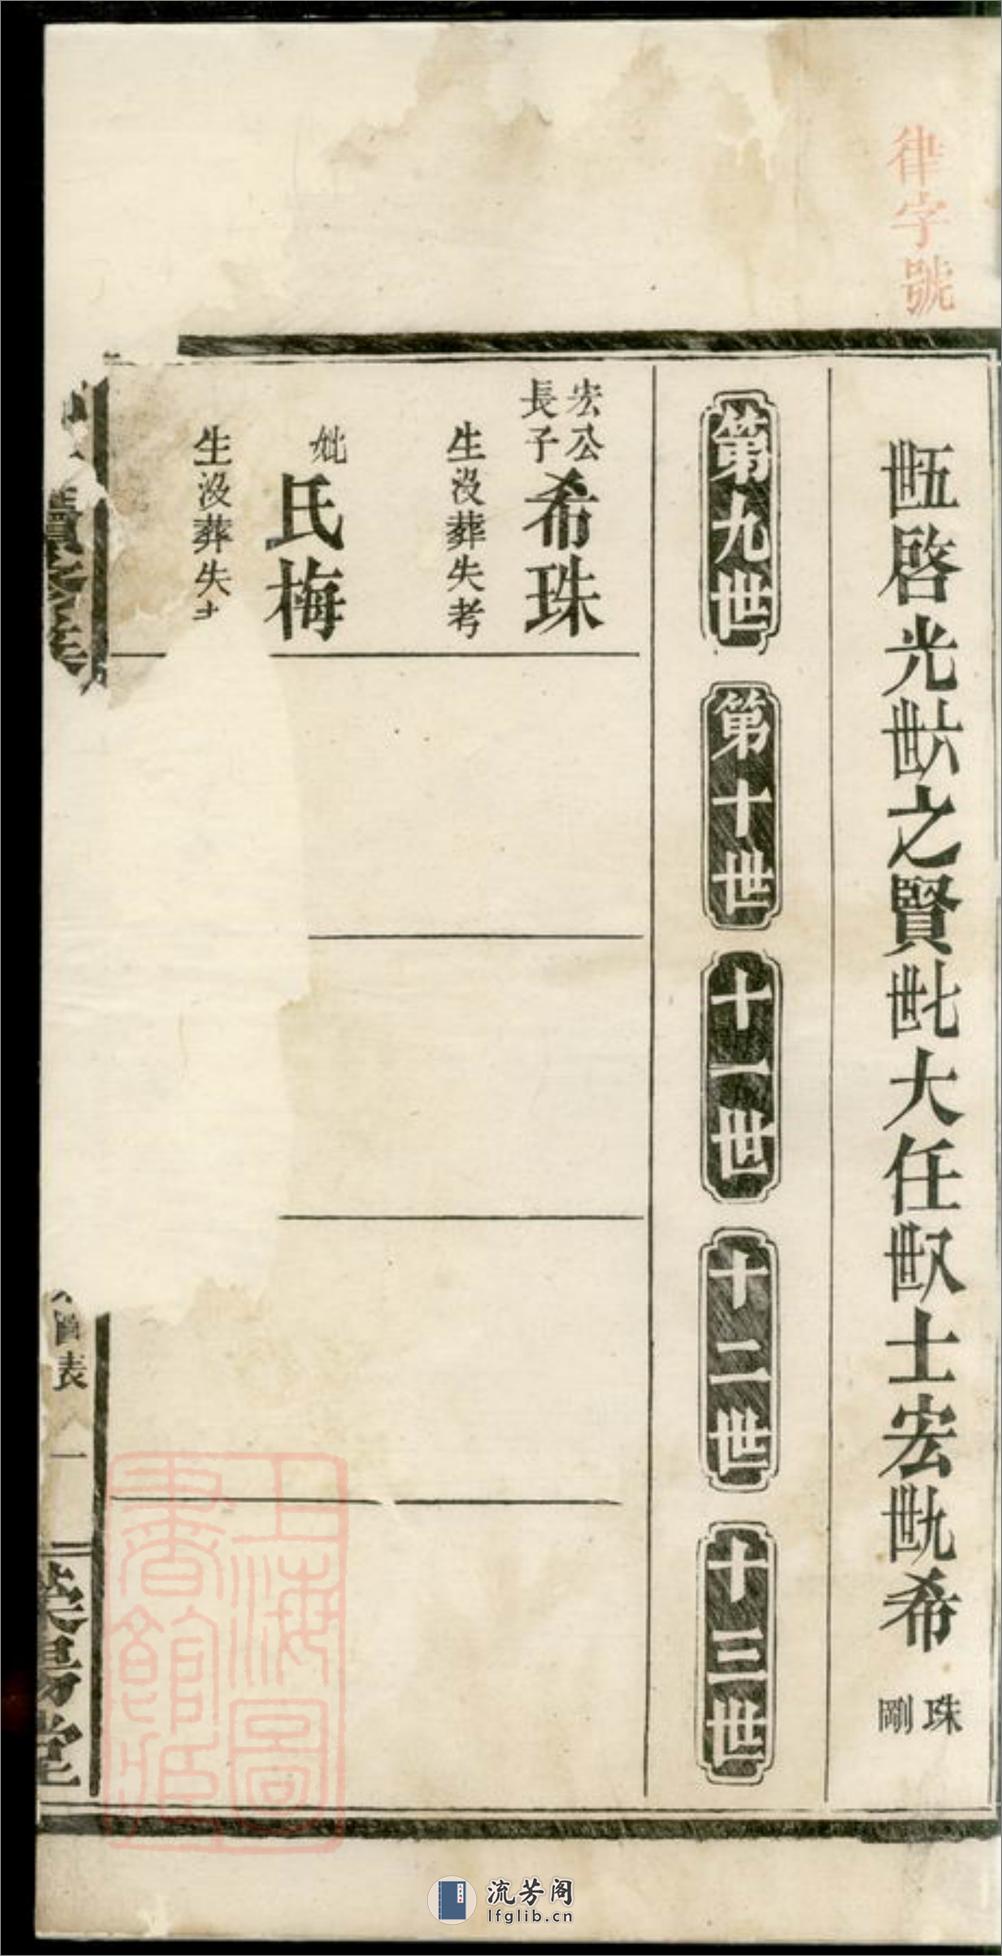 律字號
世五啓光世六之賢世七大任世八士宏世九希珠剛
第九世
第十世
十一世
十二世
十三世
宏公長子希珠
生沒葬失考
妣氏梅
生沒葬失
表
一
堂
上海圖書館藏
流芳阁
lfglib.cn